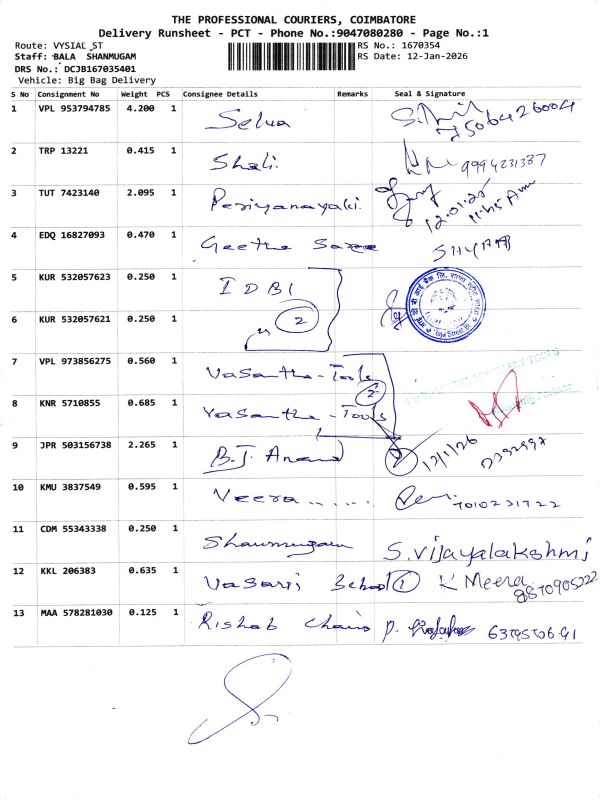 THE PROFESSIONAL COURIERS, COIMBATORE
Delivery Runsheet - PCT - Phone No.:9047080280 - Page No.:1
Route: VYSIAL ST
Staff: BALA SHANMUGAM
DRS No.: DCJB167035401
Vehicle: Big Bag Delivery
RS No.: 1670354
RS Date: 12-Jan-2026
S No Consignment No Weight PCS Consignee Details Remarks Seal & Signature
1 VPL 953794785 4.200 1 Selva
2 TRP 13221 0.415 1 Shali. 9994231387
3 TUT 7423140 2.095 1 Periyanayaki. 12.01.26 11.45 Am
4 EDQ 16827093 0.470 1 Geetha Saree
5 KUR 532057623 0.250 1 IDBI
6 KUR 532057621 0.250 1 " 2
7 VPL 973856275 0.560 1 Vasantha - Tools
8 KNR 5710855 0.685 1 Vasantha - Tools 2
9 JPR 503156738 2.265 1 B.J. Anand 12/1/26
10 KMU 3837549 0.595 1 Veera...... 7010231722
11 CDM 55343338 0.250 1 Shanmugam S.Vijayalakshmi
12 KKL 206383 0.635 1 Vasavi School 1 K Meera
13 MAA 578281030 0.125 1 Rishab Chains